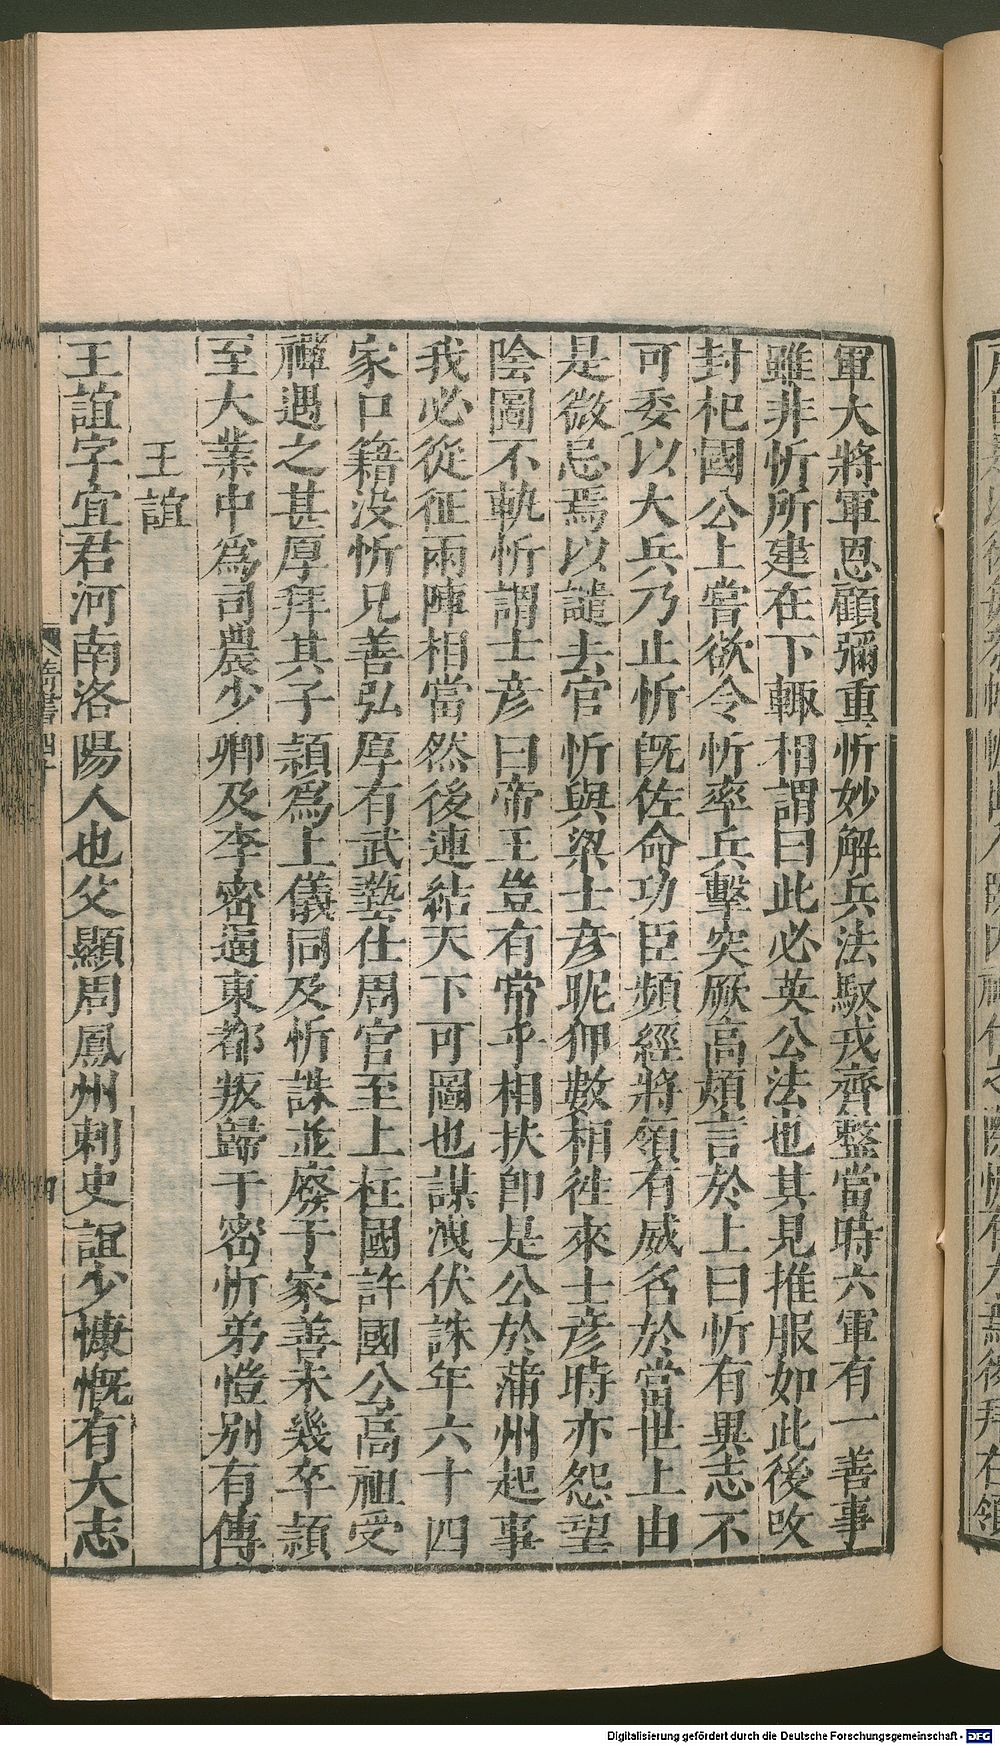 軍大將軍恩顧彌重忻妙解兵法馭戎齊整當時六軍有一善事
雖非忻所建在下輙相謂曰此必英公法也其見推服如此後攺
封杞國公上嘗欲令忻率兵擊突厥高熲言於上曰忻有異志不
可委以大兵乃止忻既佐命功臣頻經將領有威名於當世上由
是微忌焉以譴去官忻與梁士彦昵狎數相徃來士彦時亦怨望
陰圖不軌忻謂士彦曰帝王豈有常乎相扶即是公於蒲州起事
我必從征兩陣相當然後連結天下可圖也謀洩伏誅年六十四
家口籍没忻兄善弘厚有武藝仕周官至上柱國許國公高祖受
禪遇之甚厚拜其子頴爲上儀同及忻誅並廢于家善未幾卒頴
至大業中爲司農少卿及李密逼東都叛歸于密忻弟愷別有傳
王誼
王誼字宜君河南洛陽人也父顯周鳳州刺史誼少慷慨有大志
隋書四十
Digitalisierung gefördert durch die Deutsche Forschungsgemeinschaft - DFG